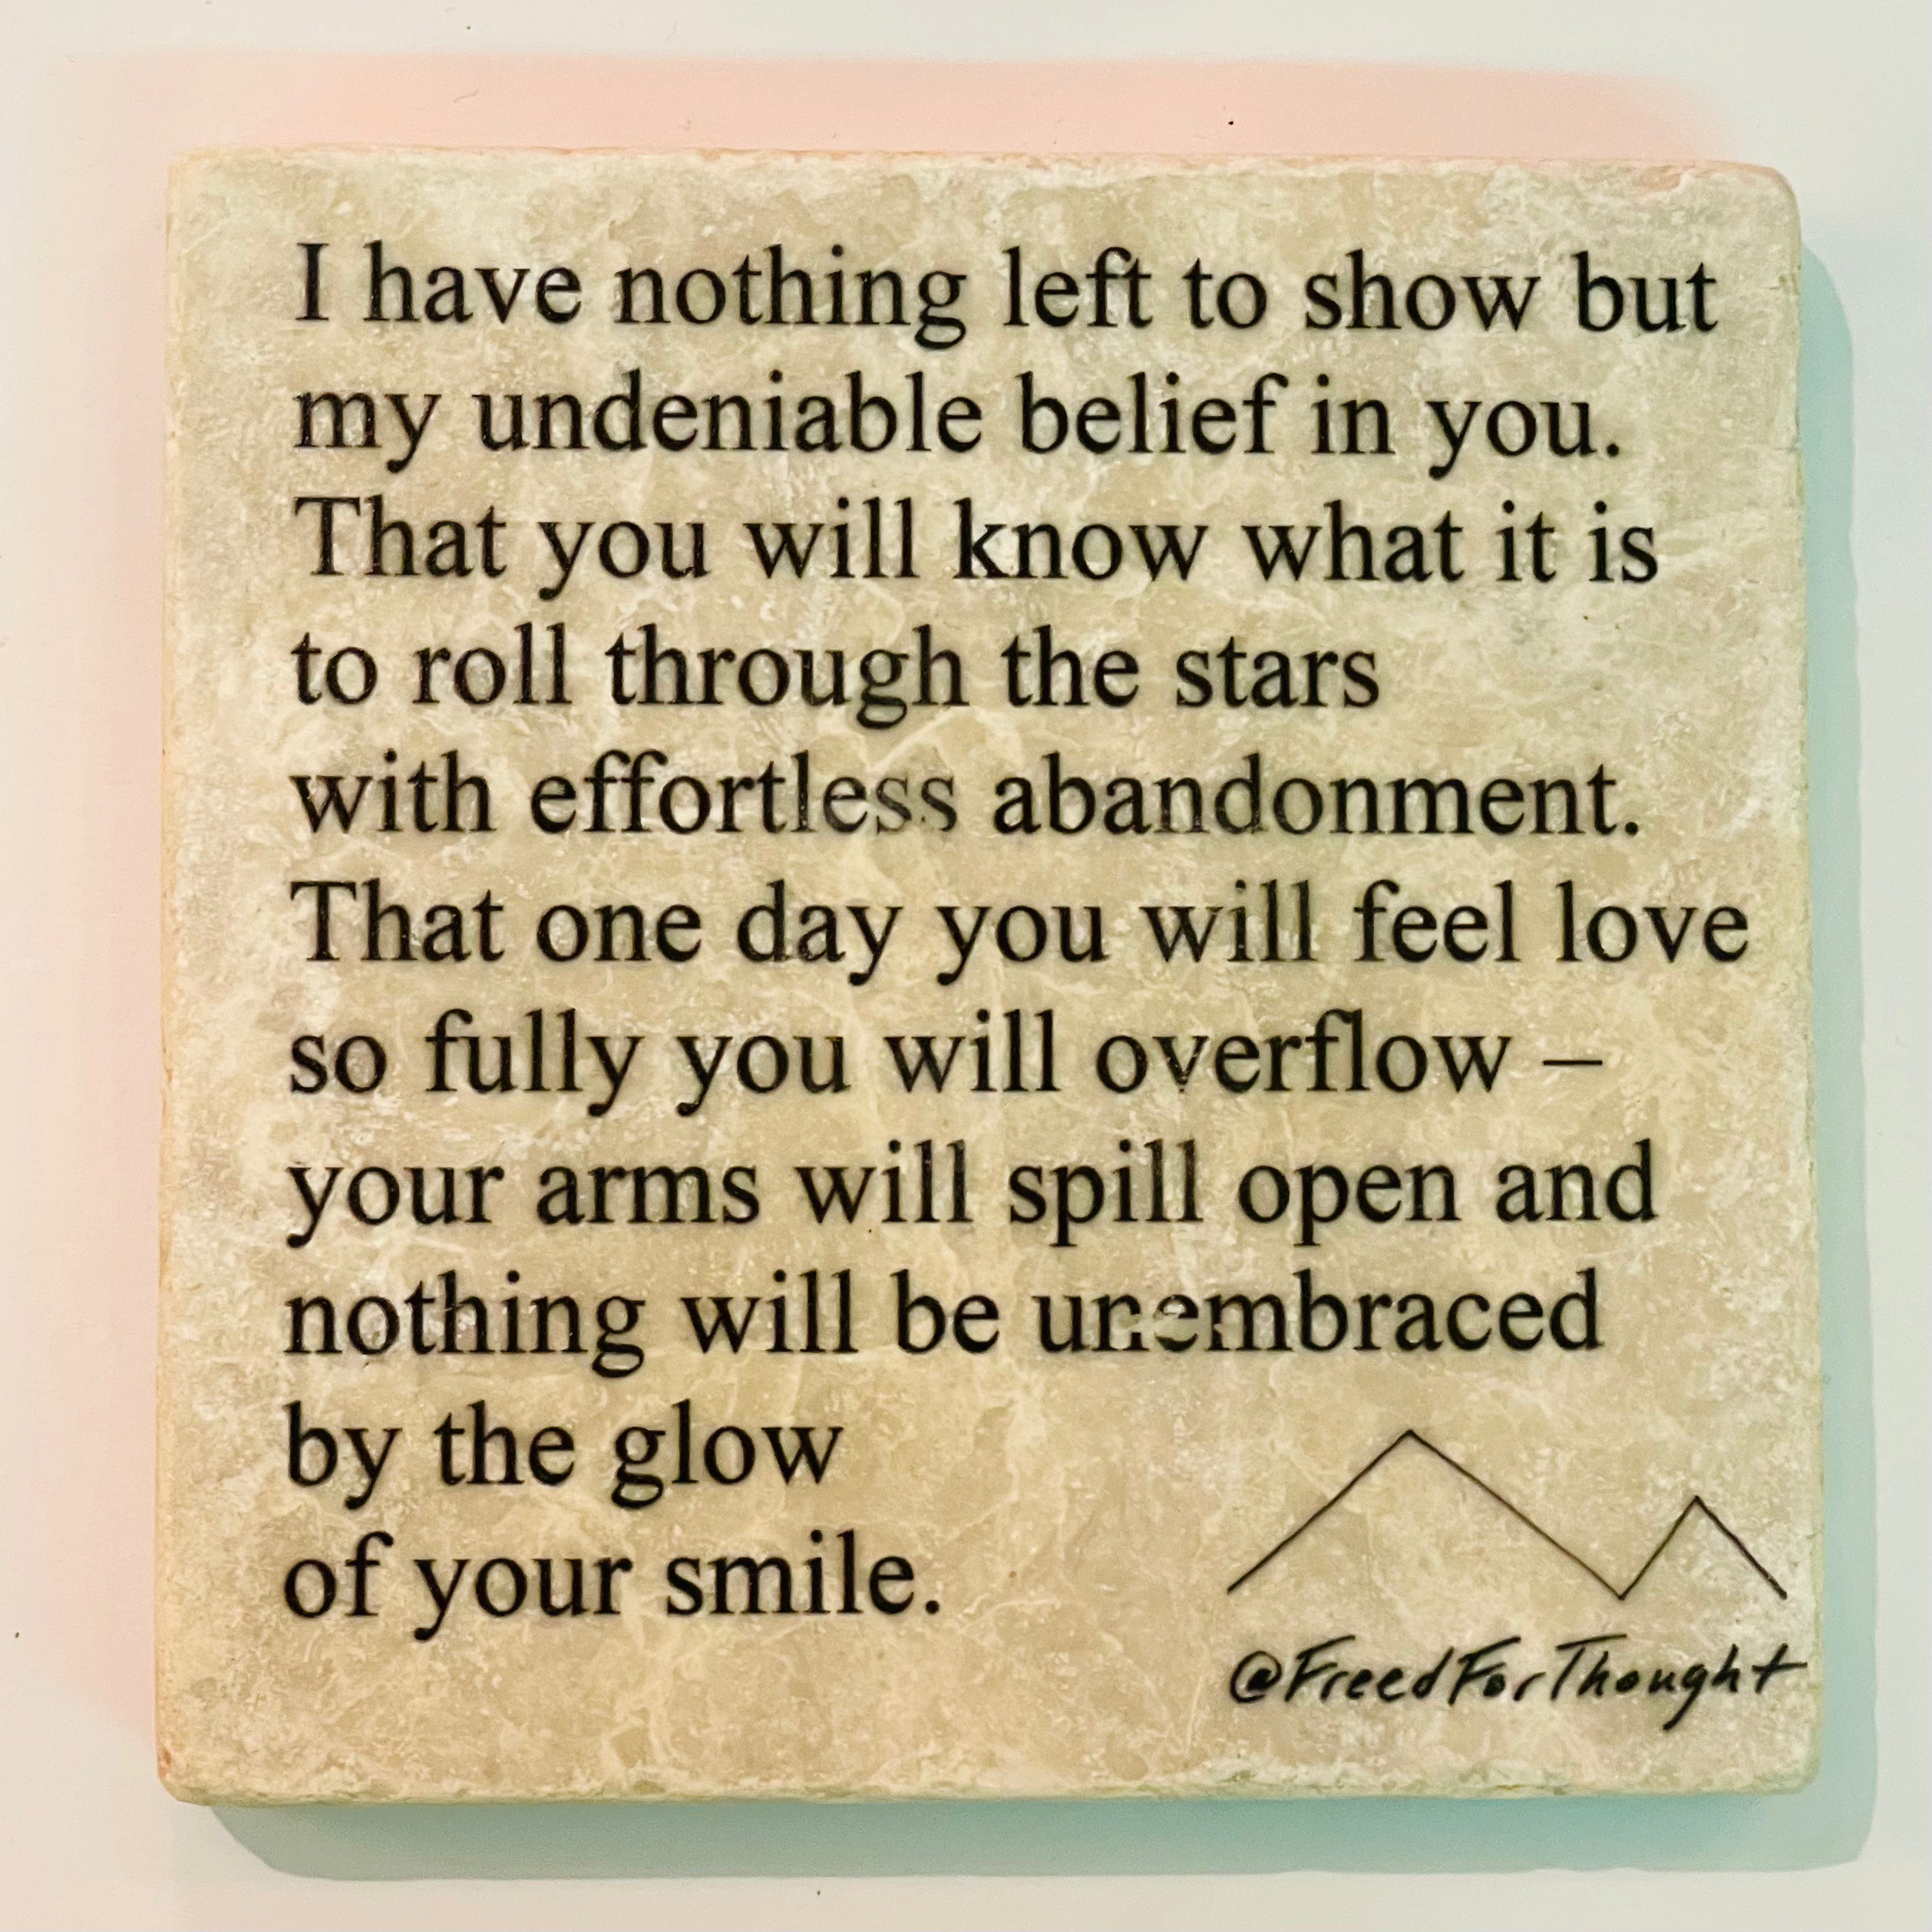 I have nothing left to show but
my undeniable belief in you.
That you will know what it is
to roll through the stars
with effortless abandonment.
That one day you will feel love
so fully you will overflow –
your arms will spill open and
nothing will be unembraced
by the glow
of your smile.
@FreedForThought